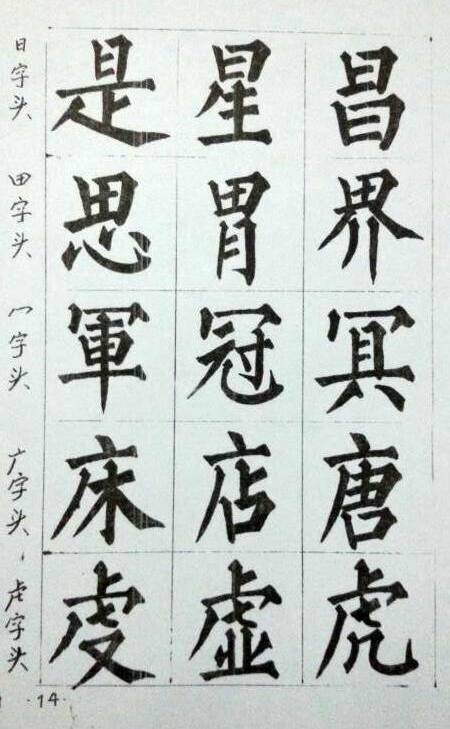 日字头 是 星 昌
田字头 思 胃 界
冖字头 軍 冠 冥
广字头 床 店 唐
虍字头 虔 虚 虎
·14·